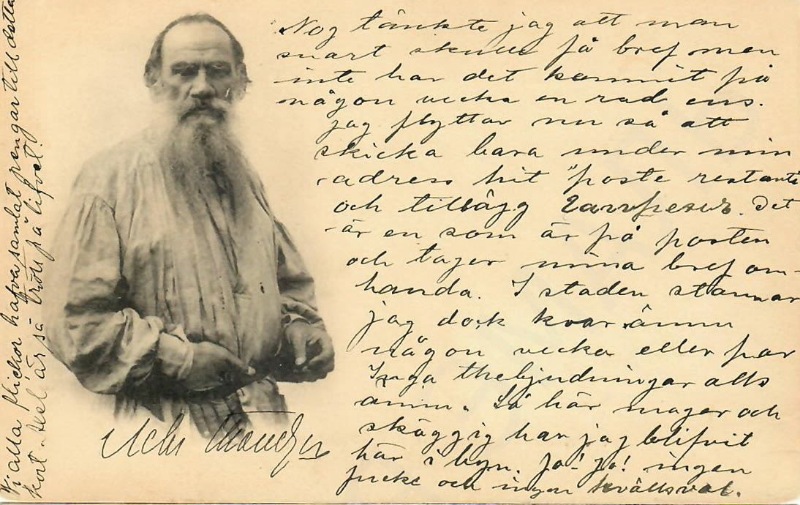 Nog tänkte jag att man
snart skulle få bref men
inte har det kommit på
någon vecka en rad ens.
Jag flyttar nu så att
skicka bara under min
adress hit "poste restante
och tillägg. Det
är en som är på posten
och tager mina bref om-
handa. I staden stannar
jag dock kvar ännu
någon vecka eller par
Inga thebjudningar alls
ännu. Så här mager och
skäggig har jag blifvit
här i byn. Ja! ja! ingen
och ingen kvällsvol.
Vi alla flickor hafva samlat pengar till detta
kort - är så trött på lifvet.